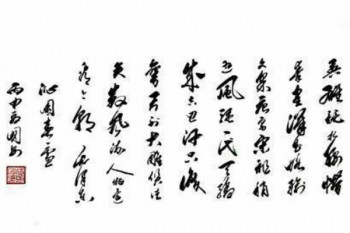 英雄競折腰惜
秦皇漢武略輸
文采唐宗宋祖稍
遜風騷一代天驕
成吉思汗只識
彎弓射大雕俱往
矣數風流人物還
看今朝 毛澤東
沁園春雪
丙申